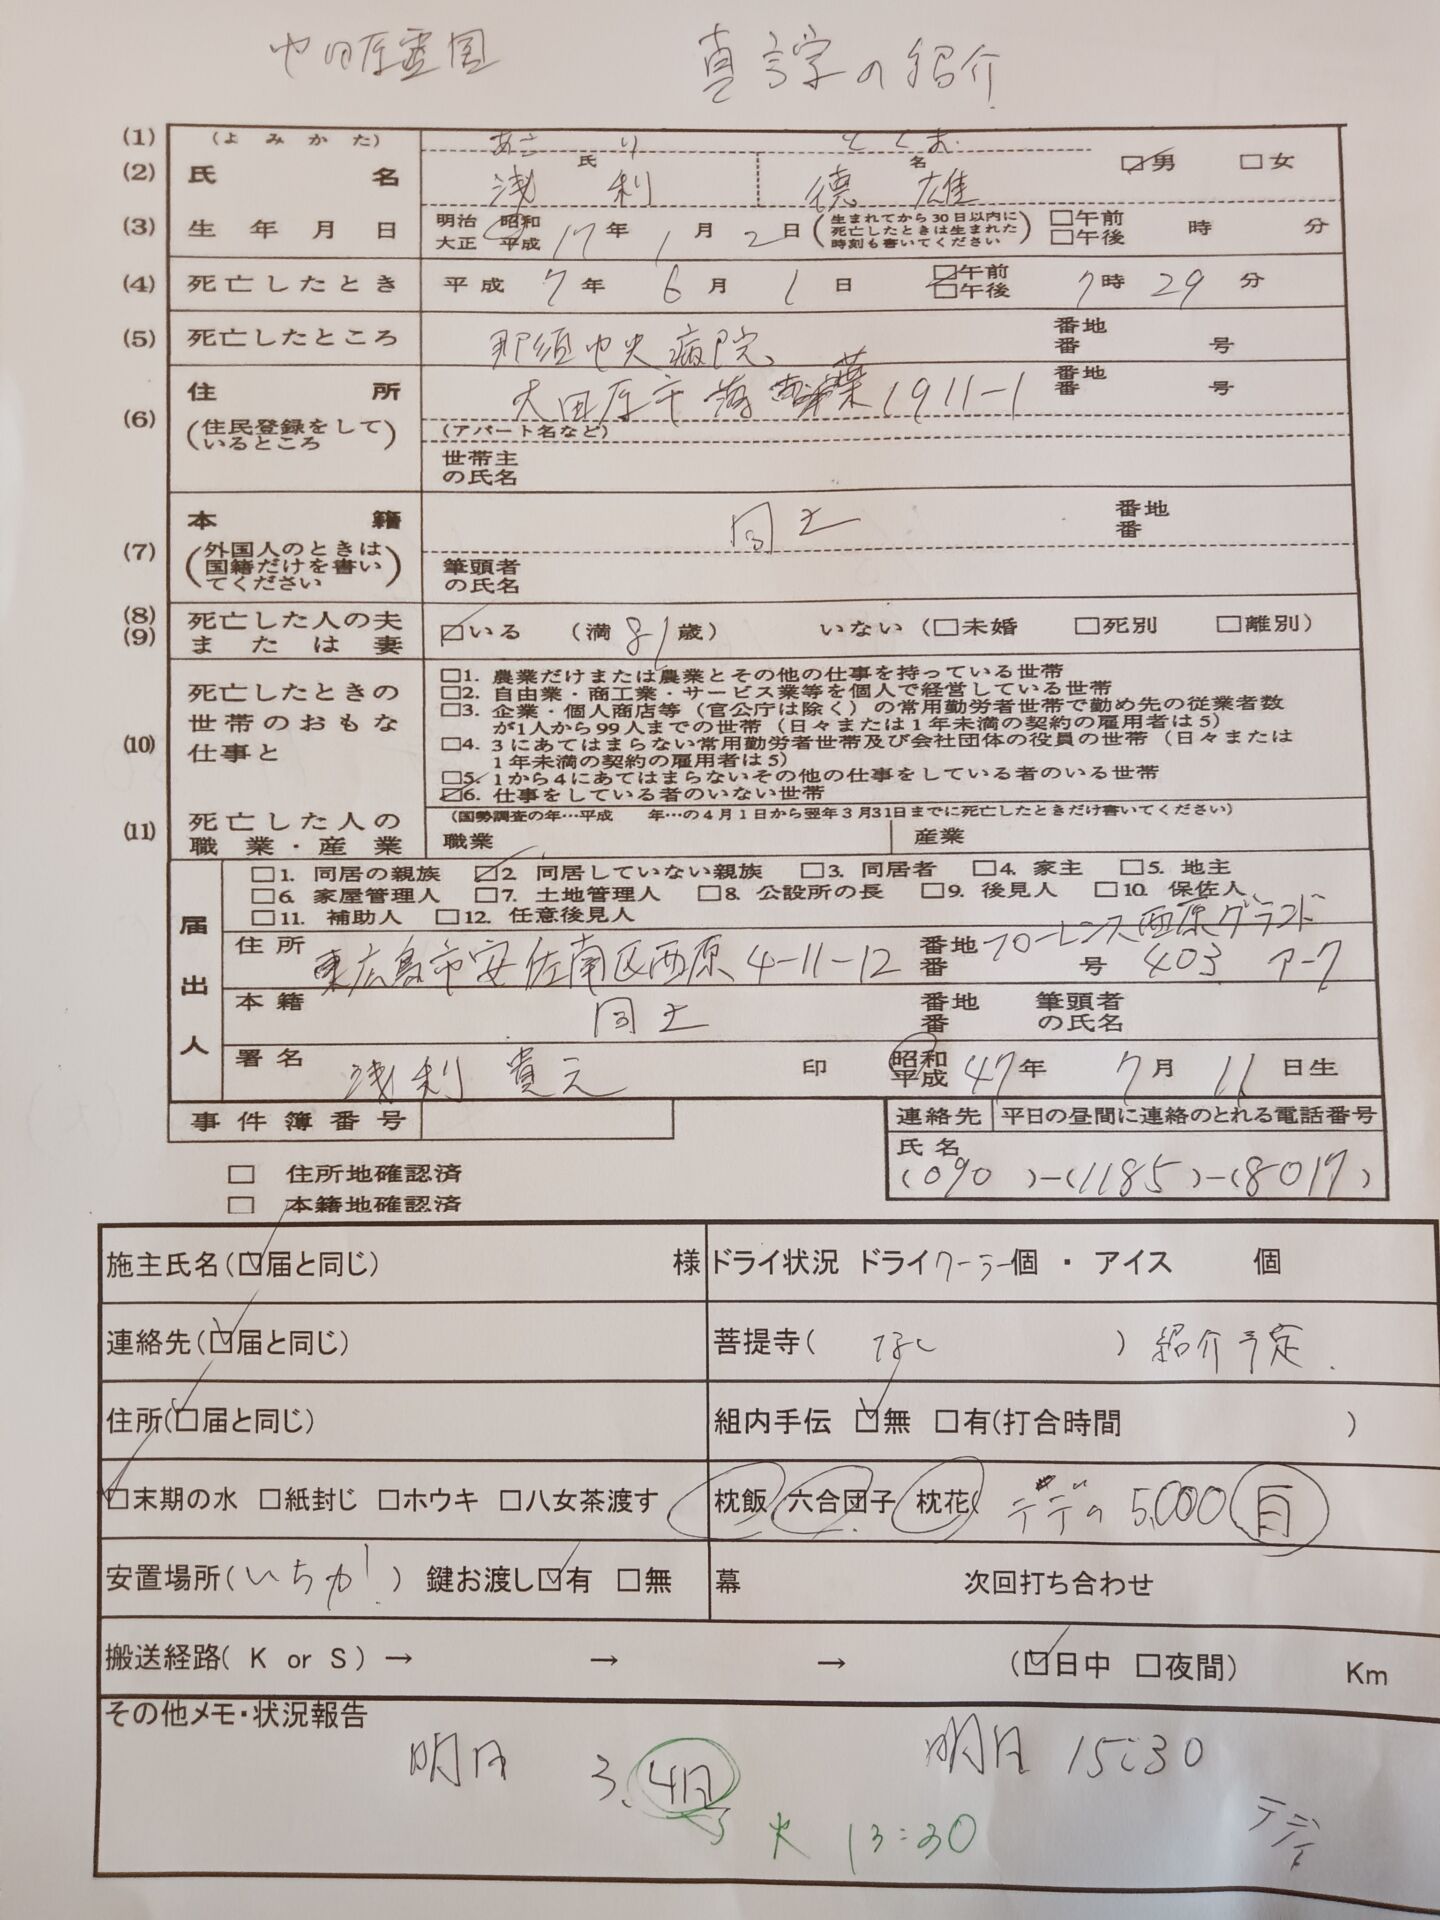 真言宗の紹介
(1) (よみかた) あさり とくお
(2) 氏名 氏 浅利 名 德雄 ☑男 □女
(3) 生年月日 明治 昭和 大正 平成 17年 1月 2日 (生まれてから30日以内に死亡したときは生まれた時刻も書いてください) □午前 □午後 時 分
(4) 死亡したとき 平成 7年 6月 1日 ☑午前 □午後 7時 29分
(5) 死亡したところ 那須中央病院 番地 番 号
(6) 住所 (住民登録をしているところ) 大田原市 1911-1 番地 番 号
(アパート名など)
世帯主の氏名
(7) 本籍 (外国人のときは国籍だけを書いてください) 同上 番地 番
筆頭者の氏名
(8) (9) 死亡した人の夫または妻 ☑いる (満81歳) いない (□未婚 □死別 □離別)
(10) 死亡したときの世帯のおもな仕事と
□1. 農業だけまたは農業とその他の仕事を持っている世帯
□2. 自由業・商工業・サービス業等を個人で経営している世帯
□3. 企業・個人商店等(官公庁は除く)の常用勤労者世帯で勤め先の従業者数が1人から99人までの世帯(日々または1年未満の契約の雇用者は5)
□4. 3にあてはまらない常用勤労者世帯及び会社団体の役員の世帯(日々または1年未満の契約の雇用者は5)
□5. 1から4にあてはまらないその他の仕事をしている者のいる世帯
☑6. 仕事をしている者のいない世帯
(11) 死亡した人の職業・産業 (国勢調査の年…平成 年…の4月1日から翌年3月31日までに死亡したときだけ書いてください)
職業 産業
届出人
□1. 同居の親族 ☑2. 同居していない親族 □3. 同居者 □4. 家主 □5. 地主
□6. 家屋管理人 □7. 土地管理人 □8. 公設所の長 □9. 後見人 □10. 保佐人
□11. 補助人 □12. 任意後見人
住所 広島市安佐南区西原4-11-12 番地 番 号 フローレンス西原グランドアーク 403
本籍 同上 番地 番 筆頭者の氏名
署名 浅利貴元 印 昭和 平成 47年 7月 11日生
事件簿番号
連絡先 平日の昼間に連絡のとれる電話番号
氏名
(090)-(1185)-(8017)
□ 住所地確認済
□ 本籍地確認済
施主氏名(☑届と同じ) 様 ドライ状況 ドライクーラー個 ・ アイス 個
連絡先(☑届と同じ) 菩提寺( なし ) 紹介予定.
住所(☑届と同じ) 組内手伝 ☑無 □有(打合時間 )
☑末期の水 □紙封じ □ホウキ □八女茶渡す 枕飯 六合団子 枕花 5,000 白
安置場所(いちか!) 鍵お渡し☑有 □無 幕 次回打ち合わせ
搬送経路( K or S )→ → → (☑日中 □夜間) Km
その他メモ・状況報告
明日 3, 4日 明日 15:30
火 13:30